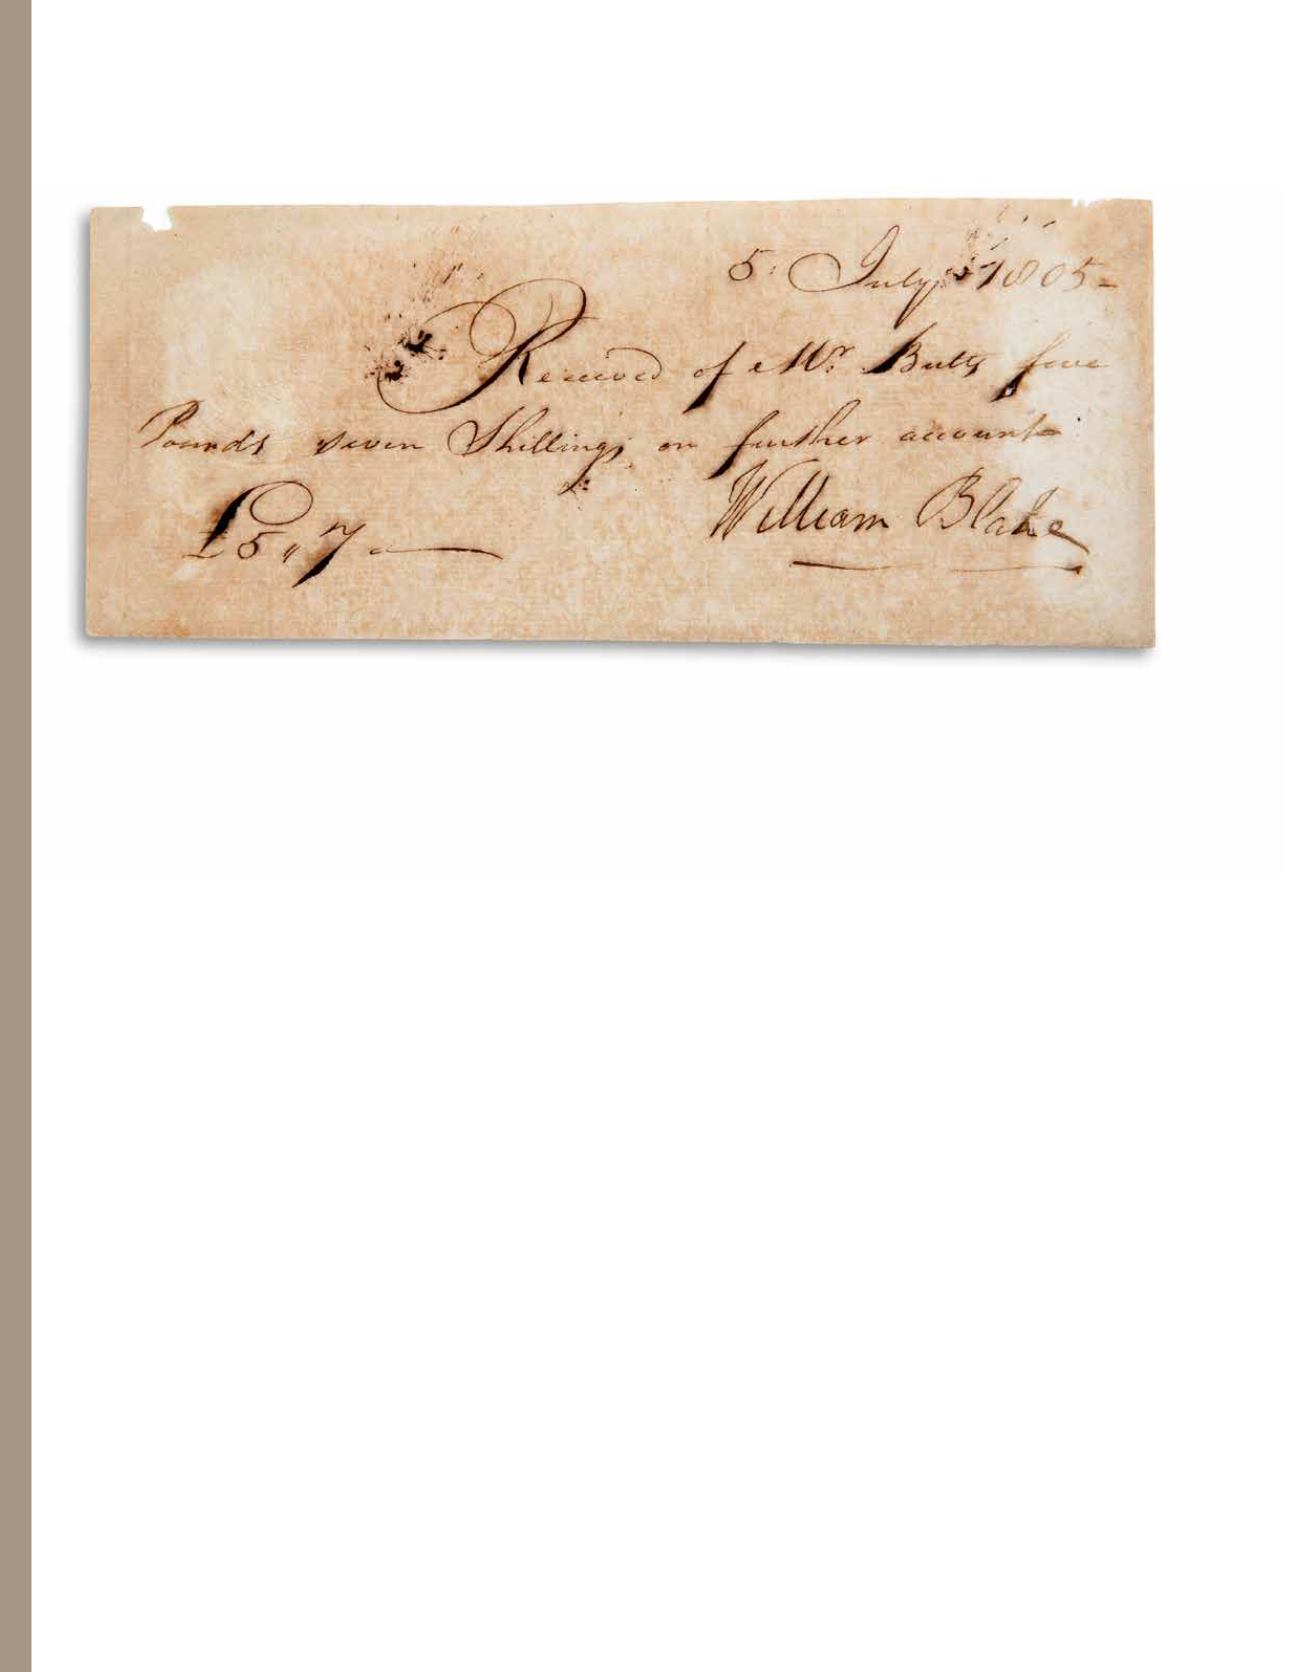 5 July 1805-
Received of Mr. Butts five
Pounds seven Shillings on further account
William Blake
£5,,7,,—